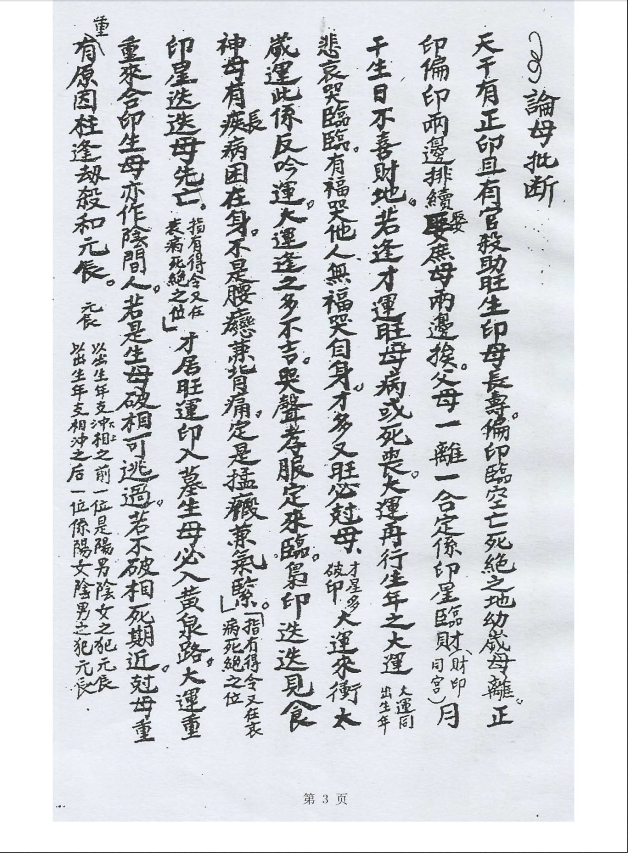 論母批断
天干有正印且有官殺助旺生印母長壽。偏印臨空亡死絕之地幼歲母離。正
印偏印兩邊排續娶庶母兩邊挨。父母一離一合定係印星臨財(財印同宮)月
干生日不喜財地。若逢才運旺母病或死喪。大運再行生年之大運 大運同出生年
悲哀哭臨臨。有福哭他人無福哭自身。才多又旺必尅母、才星多破印 大運來衝太
歲運此係反吟運。大運逢之多不吉。哭聲孝服定來臨。梟印迭迭見食
神母有長疾病困在身。不是腰癦兼背痛。定是猛癥兼氣緊。」「指有得令又在衰病死絕之位
印星迭迭母先亡。指有得令又在衰病死絕之位」才居旺運印入墓生母必入黃泉路。大運重
重來合印生母亦作陰間人。若是生母破相可逃過。若不破相死期近。尅母重
重有原因柱逢劫殺和元辰。 元辰 以出生年支沖相之前一位是陽男陰女之犯元辰
以出生年支相沖之后一位係陽女陰男之犯元辰
第 3 页